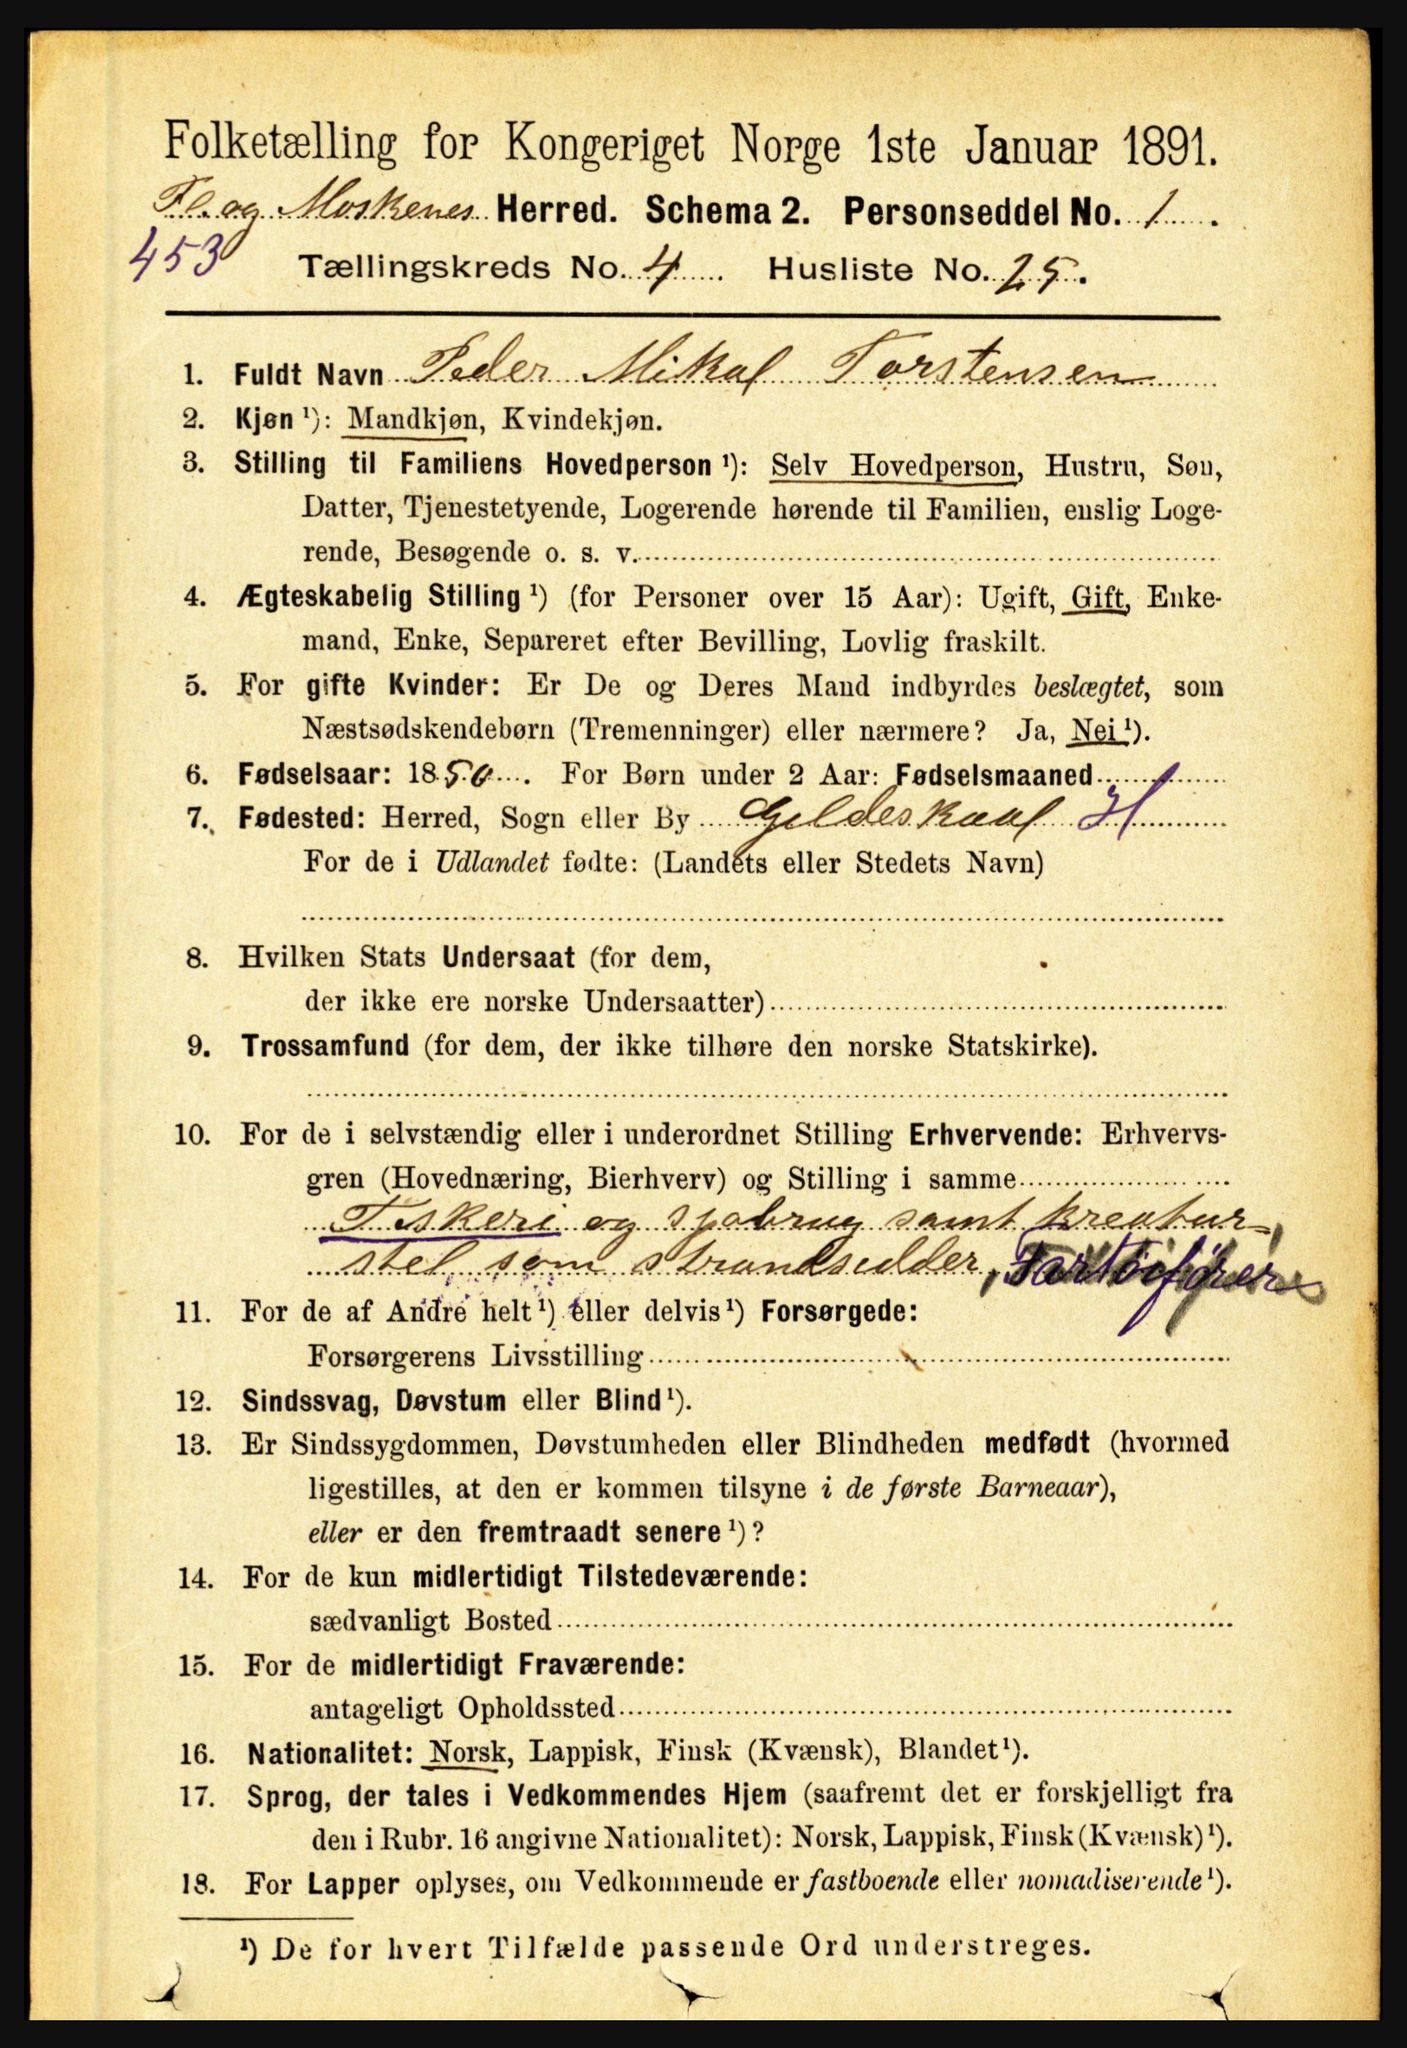 Folketælling for Kongeriget Norge 1ste Januar 1891.
Fl. og Moskenes Herred. Schema 2. Personseddel No. 1.
453
Tællingskreds No. 4 Husliste No. 25.
1. Fuldt Navn Peder Mikal Torstensen
2. Kjøn ¹): Mandkjøn, Kvindekjøn.
3. Stilling til Familiens Hovedperson ¹): Selv Hovedperson, Hustru, Søn,
Datter, Tjenestetyende, Logerende hørende til Familien, enslig Loge-
rende, Besøgende o. s. v.
4. Ægteskabelig Stilling ¹) (for Personer over 15 Aar): Ugift, Gift, Enke-
mand, Enke, Separeret efter Bevilling, Lovlig fraskilt.
5. For gifte Kvinder: Er De og Deres Mand indbyrdes beslægtet, som
Næstsødskendebørn (Tremenninger) eller nærmere? Ja, Nei ¹).
6. Fødselsaar: 1850. For Børn under 2 Aar: Fødselsmaaned
7. Fødested: Herred, Sogn eller By Gildeskaal H
For de i Udlandet fødte: (Landets eller Stedets Navn)
8. Hvilken Stats Undersaat (for dem,
der ikke ere norske Undersaatter)
9. Trossamfund (for dem, der ikke tilhøre den norske Statskirke).
10. For de i selvstændig eller i underordnet Stilling Erhvervende: Erhvervs-
gren (Hovednæring, Bierhverv) og Stilling i samme
Fiskeri og sjøbrug samt kreatur-
stel som strandsidder, Fartøifører
11. For de af Andre helt ¹) eller delvis ¹) Forsørgede:
Forsørgerens Livsstilling
12. Sindssvag, Døvstum eller Blind ¹).
13. Er Sindssygdommen, Døvstumheden eller Blindheden medfødt (hvormed
ligestilles, at den er kommen tilsyne i de første Barneaar),
eller er den fremtraadt senere ¹)?
14. For de kun midlertidigt Tilstedeværende:
sædvanligt Bosted
15. For de midlertidigt Fraværende:
antageligt Opholdssted
16. Nationalitet: Norsk, Lappisk, Finsk (Kvænsk), Blandet ¹).
17. Sprog, der tales i Vedkommendes Hjem (saafremt det er forskjelligt fra
den i Rubr. 16 angivne Nationalitet): Norsk, Lappisk, Finsk (Kvænsk) ¹).
18. For Lapper oplyses, om Vedkommende er fastboende eller nomadiserende ¹).
¹) De for hvert Tilfælde passende Ord understreges.